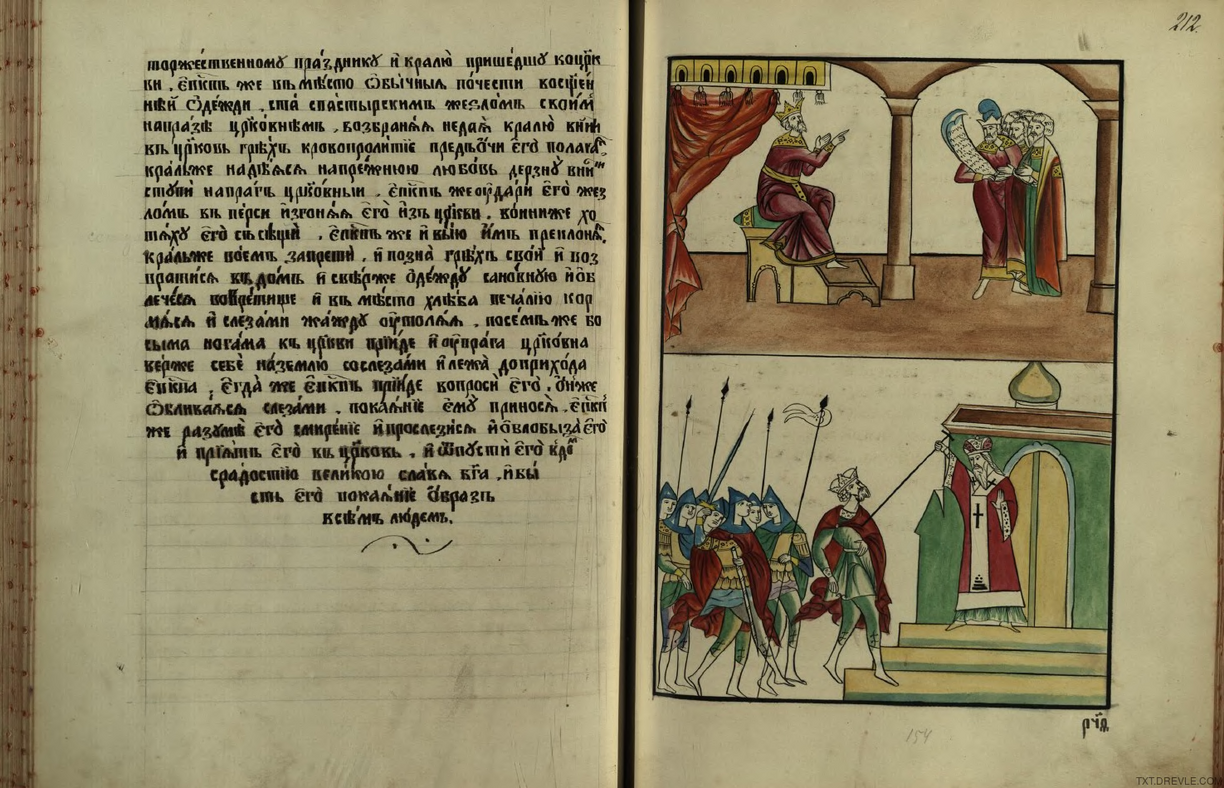 торже́ственному пра́зднику и҆ кралю̀ прише́дшу ко цр҃к
ви . є҆пⷭ҇кпъ же въ мѣ́сто ѡ҆бы́чныѧ по́чести
нѣй ѻ҆де́жди . ста̀ съ па́стырскимъ же́зломъ свои́мъ
на пра́зѣ цр҃ко́внѣмъ . возбранѧ́ѧ не да́ѧ кралю̀ вни́ти
въ цр҃ковь грѣ́хъ кровопроли́тїе пред̾ ѻ҆́чи є҆гѡ̀ полага́ѧ
кра́ль же надѣ́ѧсѧ на пре́жнюю любо́вь дерзну̀
ступи́ти на пра́гъ цр҃ко́вный . є҆пⷭ҇кпъ же ᲂу҆да́ри є҆го̀ жез
ло́мъ въ пе́рси и҆згонѧ́ѧ є҆го̀ и҆зъ цр҃кви . во́ини же хо
тѧ́ху є҆го̀ съсѣщѝ . є҆пⷭ҇кпъ же и҆ вы́ю и҆̀мъ преклонѧ́ѧ
кра́ль же во́емъ запретѝ . и҆ позна̀ грѣ́хъ сво́й и҆ воз
врати́сѧ въ до́мъ и҆ све́рже ѻ҆де́жду сано́вную и҆ ѡ҆б
лече́сѧ во вре́тище и҆ въ мѣ́сто хлѣ́ба печа́лїю кор
мѧ́сѧ и҆ слеза́ми жа́жду ᲂу҆толѧ́ѧ . посе́мъ же бо
сы́ма нога́ма къ цр҃кви прїи́де и҆ ᲂу҆ пра́га цр҃ко́вна
ве́рже себѐ на зе́млю со слеза́ми и҆ лежа̀ до прихо́да
є҆пⷭ҇кпа . є҆гда́ же є҆пⷭ҇кпъ прїи́де вопросѝ є҆го̀ . ѻ҆́нъ же
ѡ҆блива́ѧсѧ слеза́ми . покаѧ́нїе є҆мꙋ̀ приносѧ̀ . є҆пⷭ҇кпъ
же разумѣ̀ є҆гѡ̀ смире́нїе и҆ прослези́сѧ и҆ ѡ҆блобыза̀ є҆го̀
и҆ прїѧ́тъ є҆го̀ въ цр҃ковь . и҆ ѿпустѝ є҆го̀
с ра́достїю вели́кою сла́вѧ бг҃а . и҆ бы́
сть є҆гѡ̀ покаѧ́нїе ѻ҆́бразъ
всѣ́мъ лю́демъ.
212.
154
TXT.DREVLE.COM